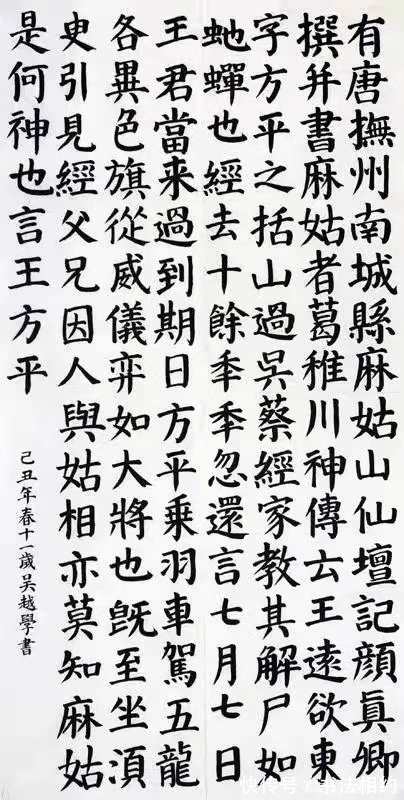 有唐撫州南城縣麻姑山仙壇記顏真卿
撰并書麻姑者葛稚川神傳云王遠欲東
字方平之括山過吳蔡經家教其解尸如
虵蟬也經去十餘秊秊忽還言七月七日
王君當来過到期日方平乗羽車駕五龍
各異色旗從威儀弈如大將也既至坐須
臾引見經父兄因人與姑相亦莫知麻姑
是何神也言王方平
己丑年春十一歲吴越學書
快传号/书法相约